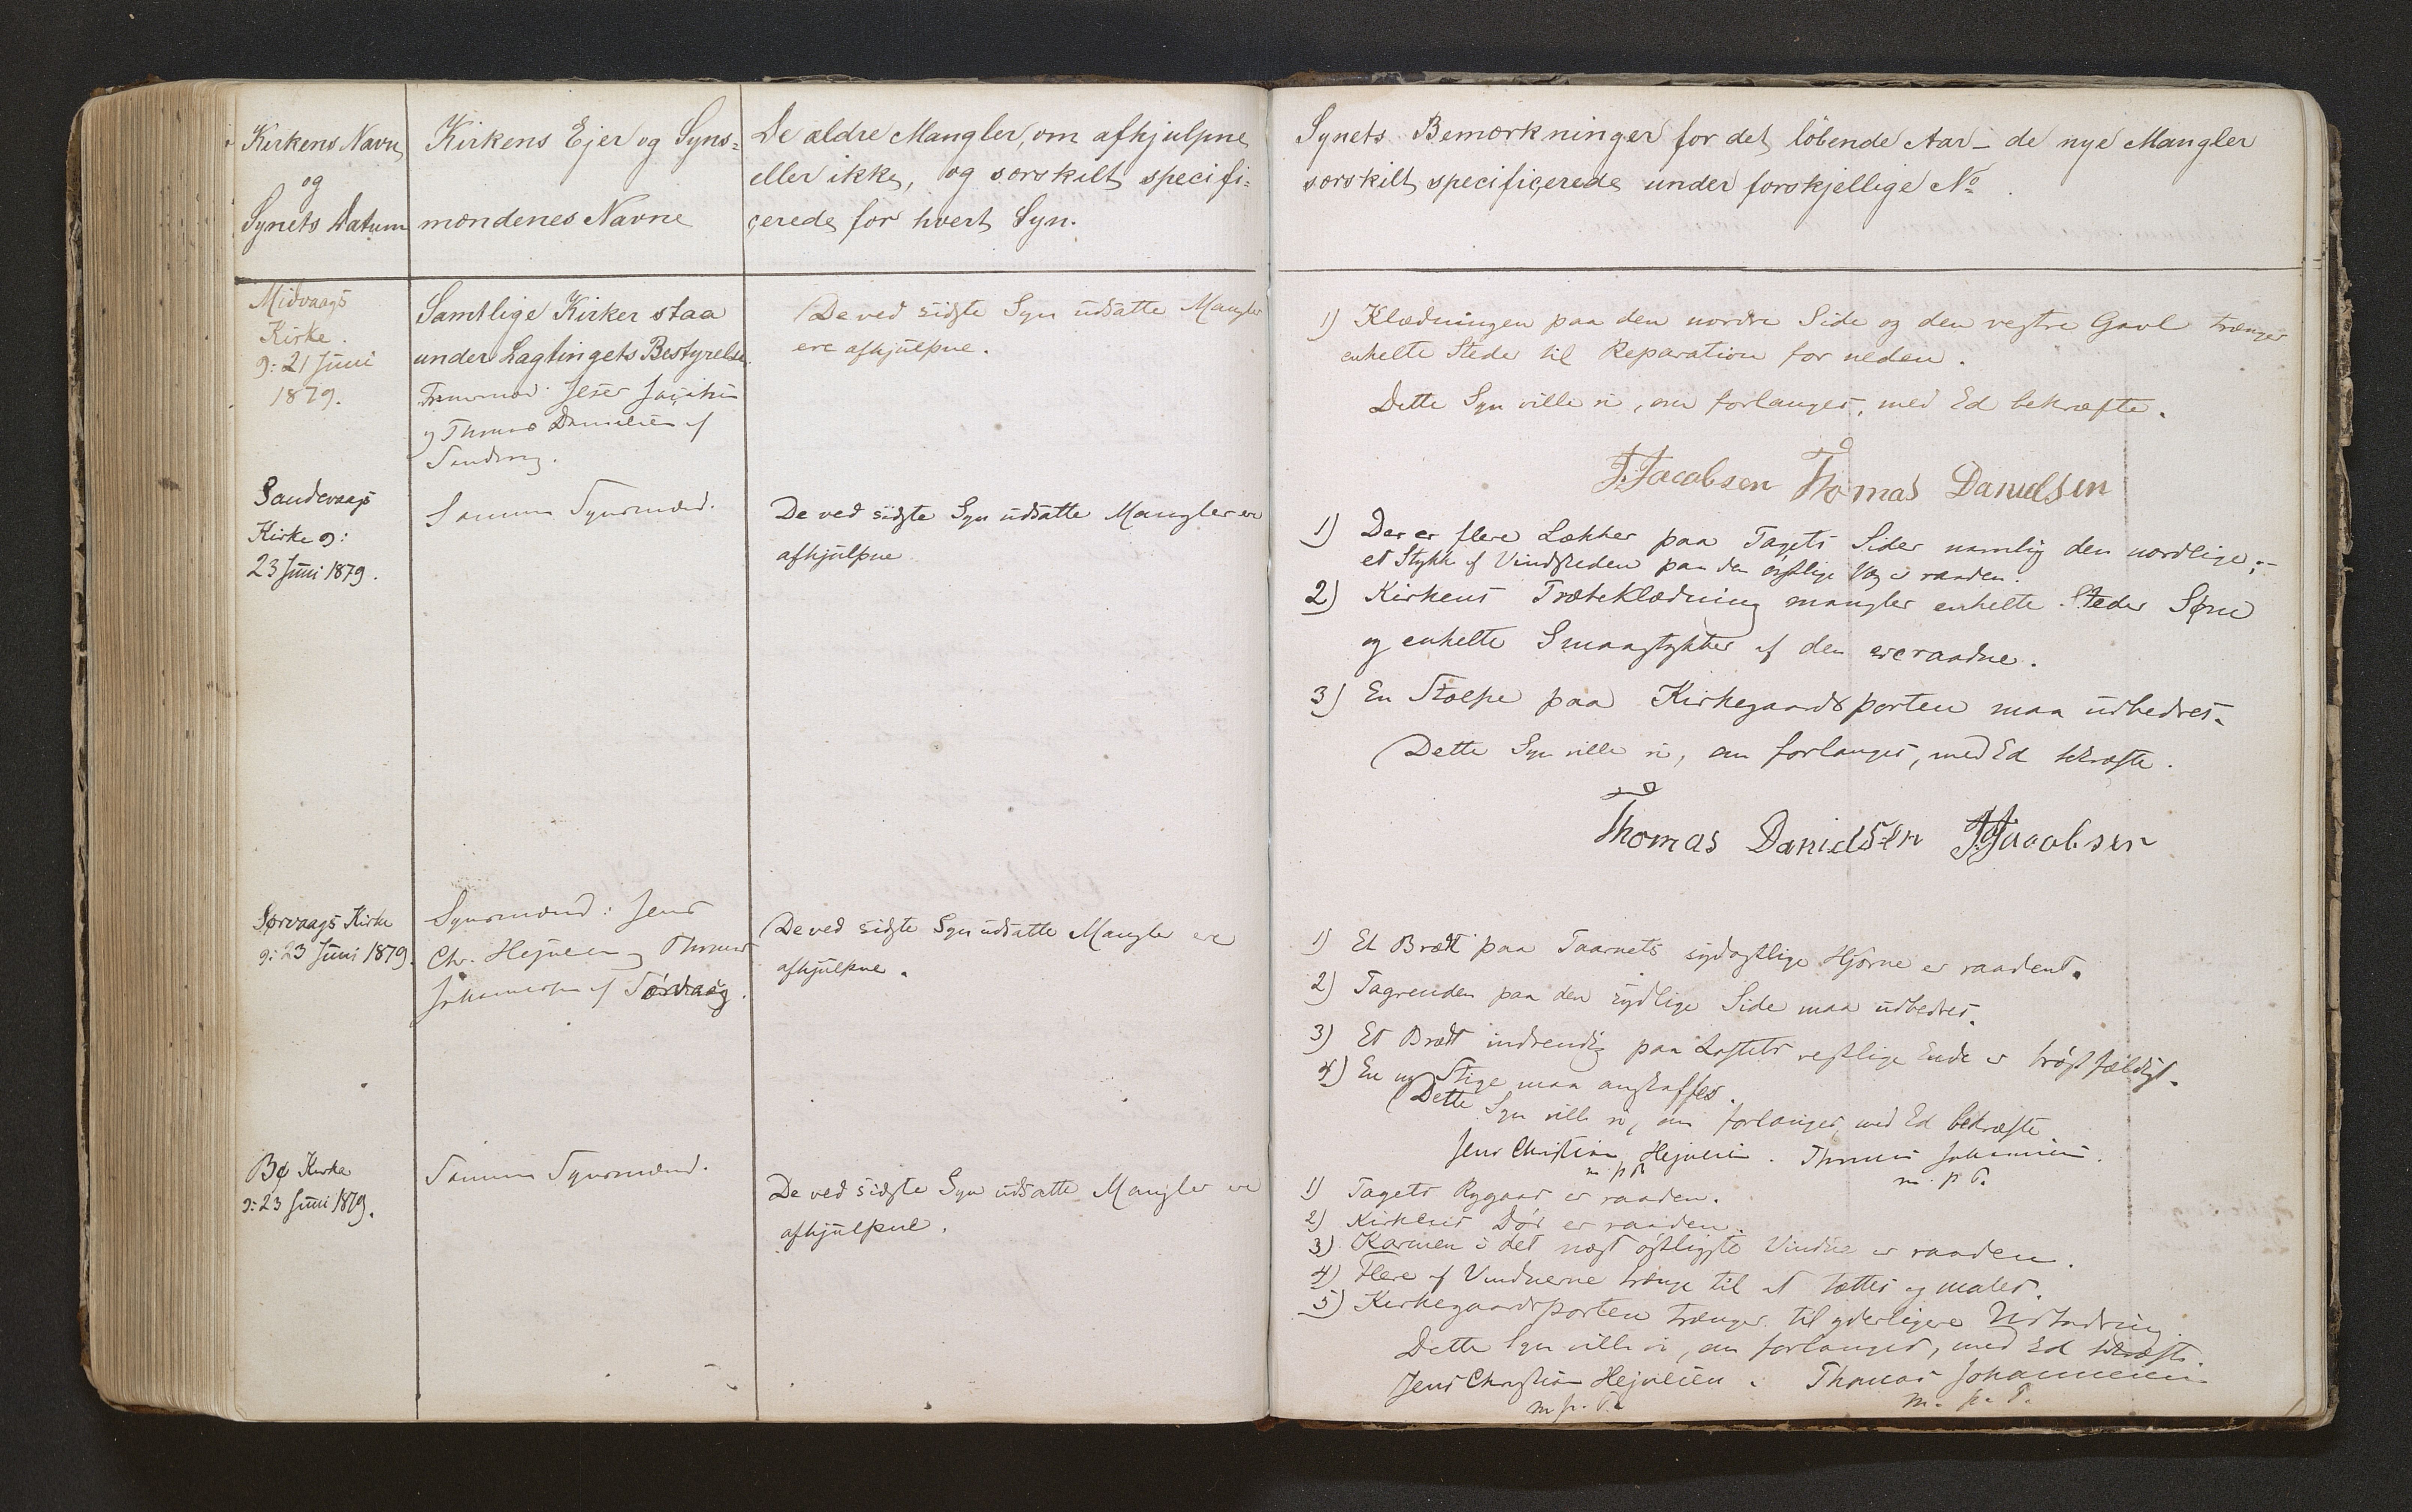 Kirkens Navn
og
Synets Datum
Kirkens Ejer og Syns=
mændenes Navne
De ældre Mangler, om afhjulpne
eller ikke, og særskilt specifi=
cerede for hvert Syn.
Synets Bemærkninger for det løbende Aar – de nye Mangler
særskilt specificerede under forskjellige No.
Midvaags
Kirke.
9: 21 Juni
1879.
Samtlige Kirker staa
under Lagtingets Bestyrelse.
og Thomas Danielsen af
De ved sidste Syn udsatte Mangler
ere afhjulpne.
1) Klædningen paa den nordre Side og den vestre Gavl trænger
enkelte Steder til Reparation for neden.
Dette Syn ville vi, om forlanges, med Ed bekræfte.
J. Jacobsen Thomas Danielsen
Sandevaags
Kirke 9:
23 Juni 1879.
Samme Synsmænd.
De ved sidste Syn udsatte Mangler ere
afhjulpne
1) Der er flere Lækker paa Tagets Sider namlig den nordlige;–
et Stykke af Vindskeden paa den østlige Væg er raaden.
2) Kirkens Træbeklædning mangler enkelte Steder Søm
og enkelte Smaastykker af den ere raadne.
3) En Stolpe paa Kirkegaardsporten maa udbedres.
Dette Syn ville vi, om forlanges, med Ed bekræfte.
Thomas Danielsen J. Jacobsen
Sørvaags Kirke
9: 23 Juni 1879.
Synsmænd: Jens
Chr. Hejnesen og Thomas
Johannesen af Sørvaag.
De ved sidste Syn udsatte Mangler ere
afhjulpne.
1) Et Brædt paa Taarnets sydøstlige Hjørne er raadent.
2) Tagrenden paa den sydlige Side maa udbedres.
3) Et Brædt indvendig paa Loftets vestlige Ende er brøstfældigt.
4) En ny Stige maa anskaffes.
Dette Syn ville vi, om forlanges, med Ed bekræfte
Jens Christian Hejnesen. Thomas Johannesen.
m. p. P. m. p. P.
Bø Kirke
9: 23 Juni 1879.
Samme Synsmænd.
De ved sidste Syn udsatte Mangler ere
afhjulpne.
1) Tagets Rygaas er raaden.
2) Kirkens Dør er raaden.
3) Karmen i det næst østligste Vindue er raaden.
4) Flere af Vinduerne trænge til at tættes og males.
5) Kirkegaardsporten trænger til yderligere Udbedring.
Dette Syn ville vi, om forlanges, med Ed bekræfte.
Jens Christian Hejnesen. Thomas Johannesen
m. p. P. m. p. P.